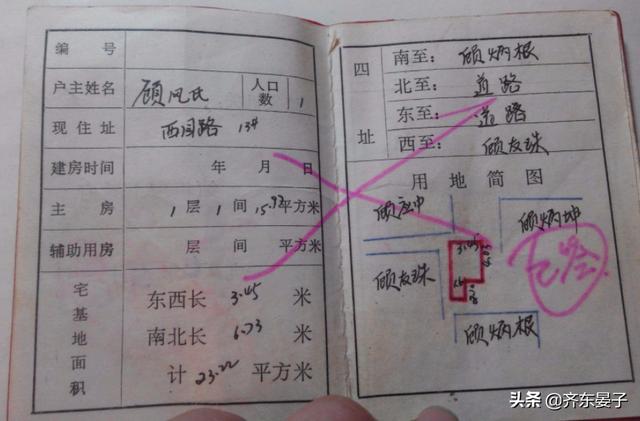 编号
户主姓名 顾凤氏 人口数 1
现住址 西园路 13#
建房时间 年 月 日
主房 1 层 1 间 15.92 平方米
辅助用房 层 间 平方米
宅基地面积
东西长 3.45 米
南北长 6.73 米
计 23.22 平方米
四址
南至: 顾炳根
北至: 道路
东至: 道路
西至: 顾友珠
用地简图
顾应中
顾炳坤
顾友珠
3.45
顾炳根
头条 @齐东晏子